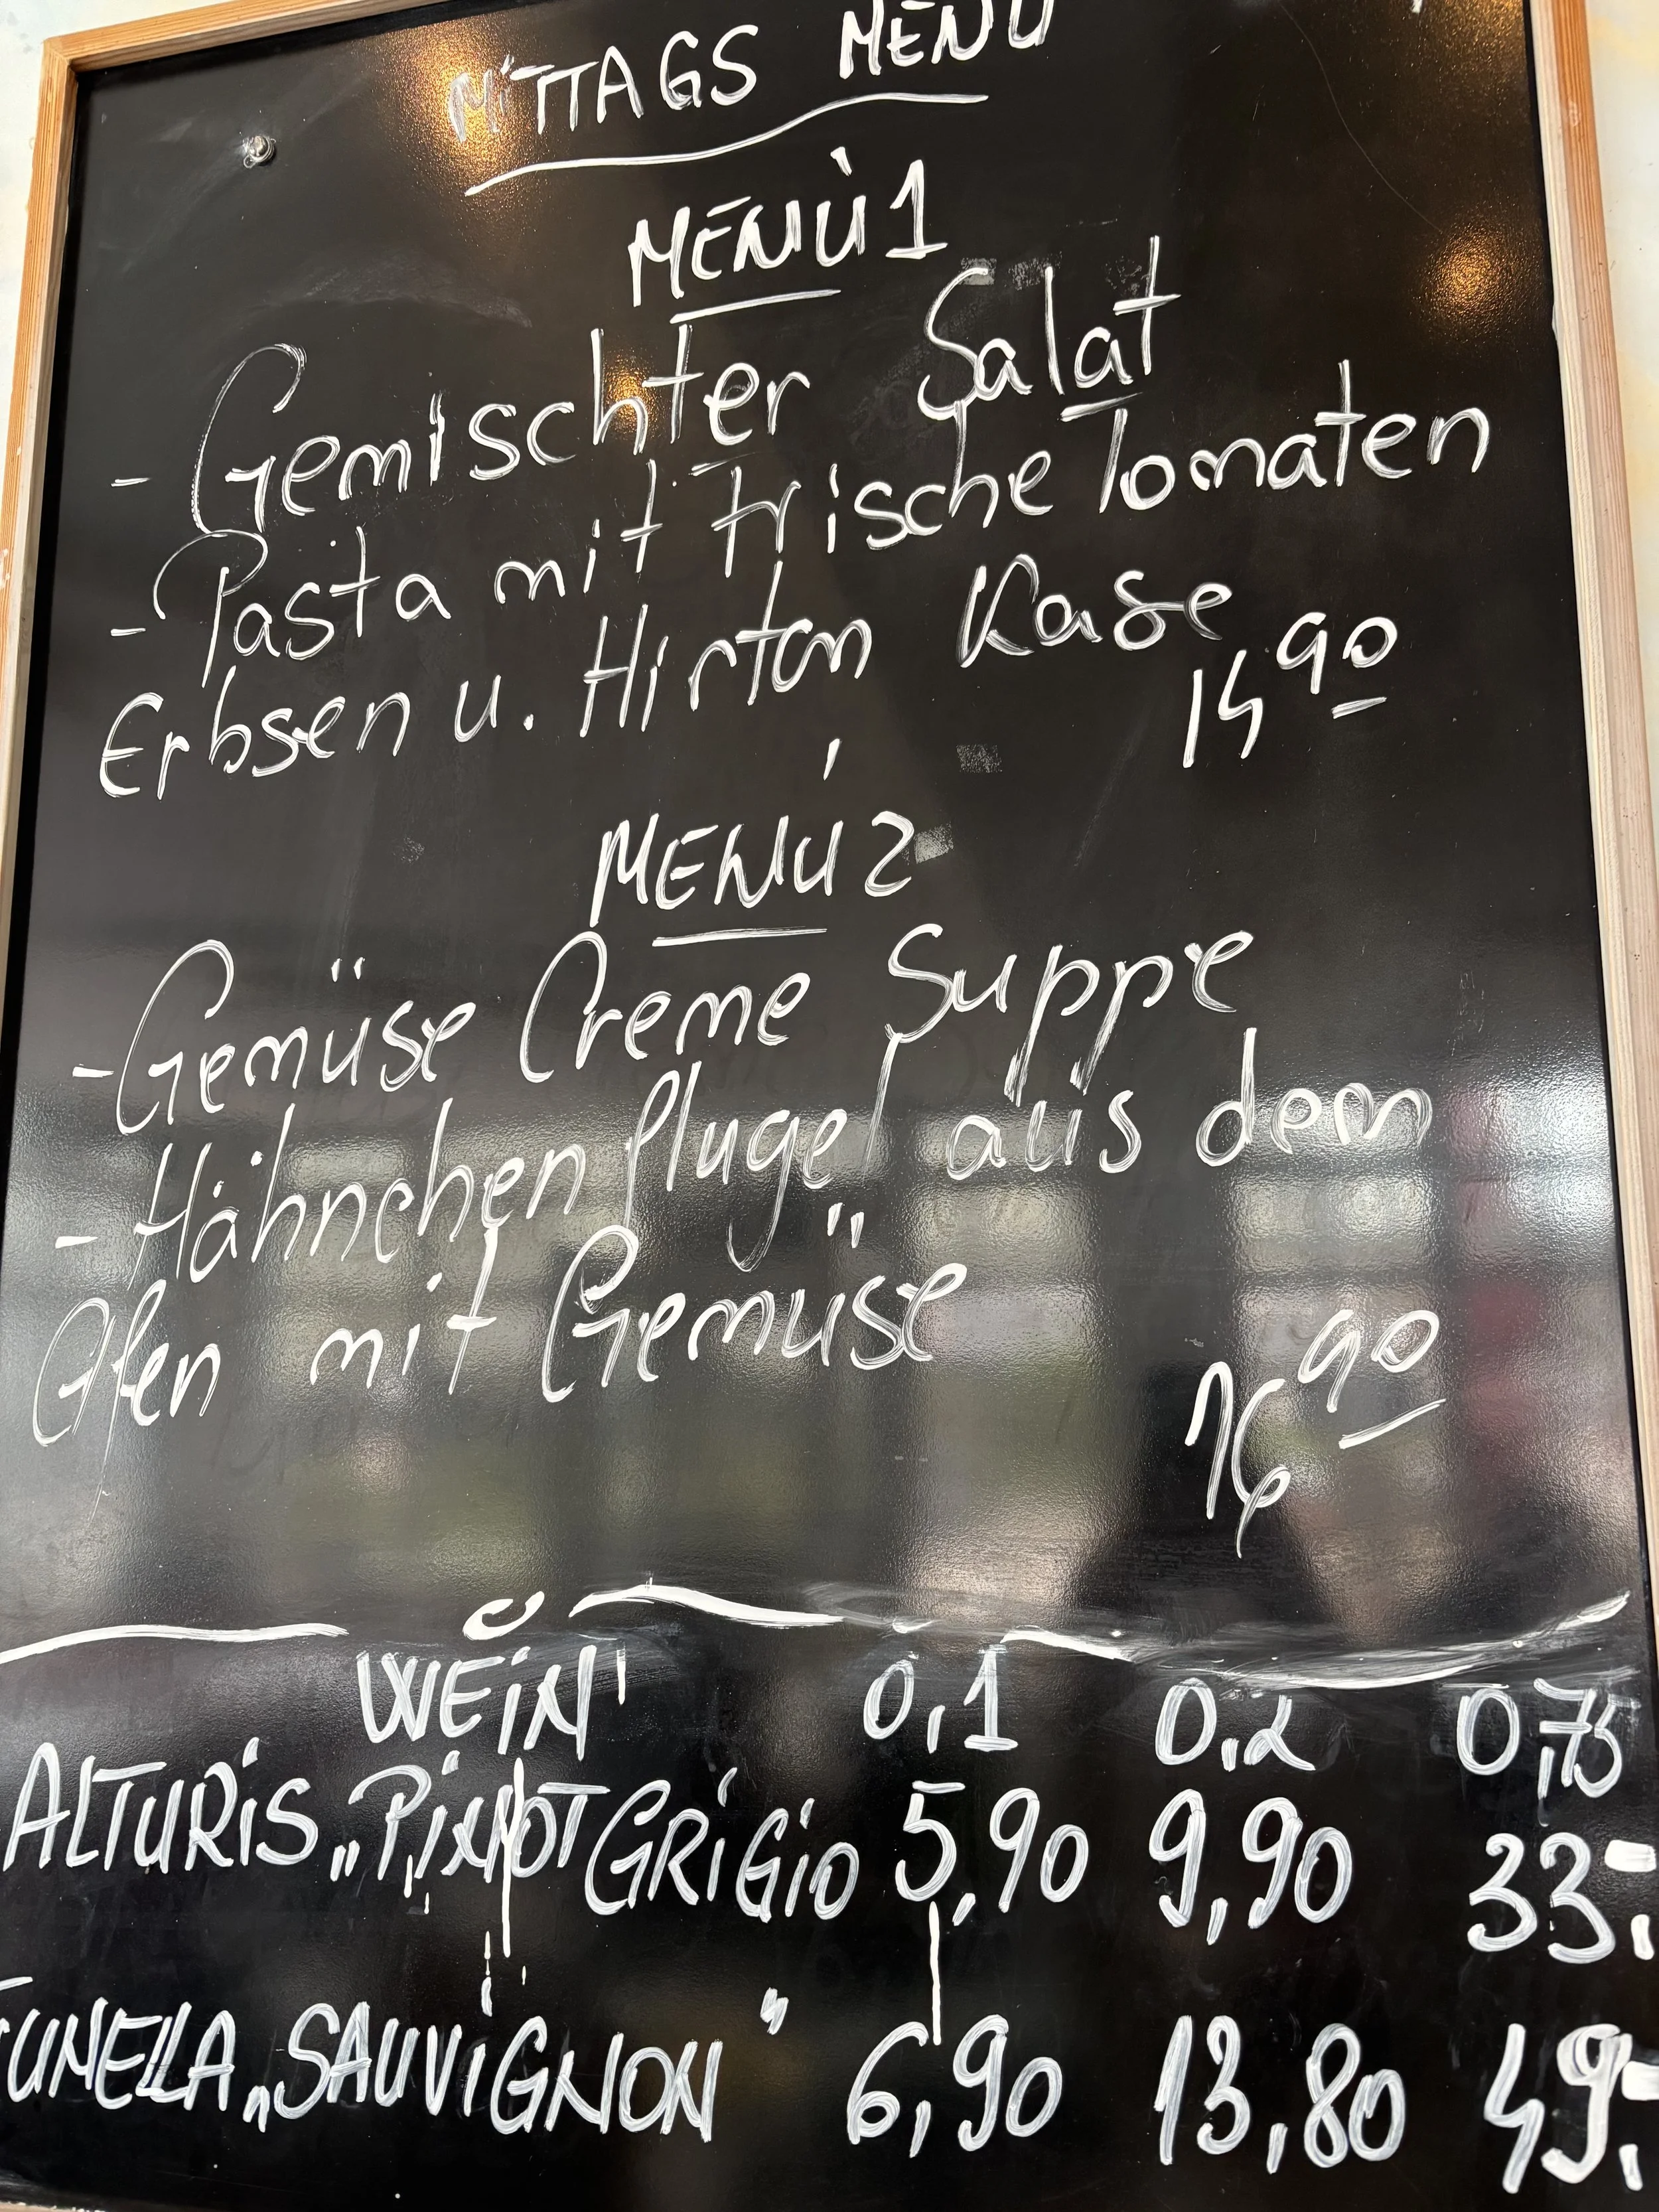 MiTTAGS MENÙ
MENÙ 1
- Gemischter Salat
- Pasta mit frische Tomaten
Erbsen u. Hirten Kase
14 90
MENÚ 2
- Gemüse Creme Suppe
- Hähnchenflugel aus dem
Ofen mit Gemüse
16 90
WEiN 0,1 0,2 0,75
ALTURiS „PiNOT GRiGiO 5,90 9,90 33,-
TUNELLA „SAUViGNON" 6,90 13,80 49,-